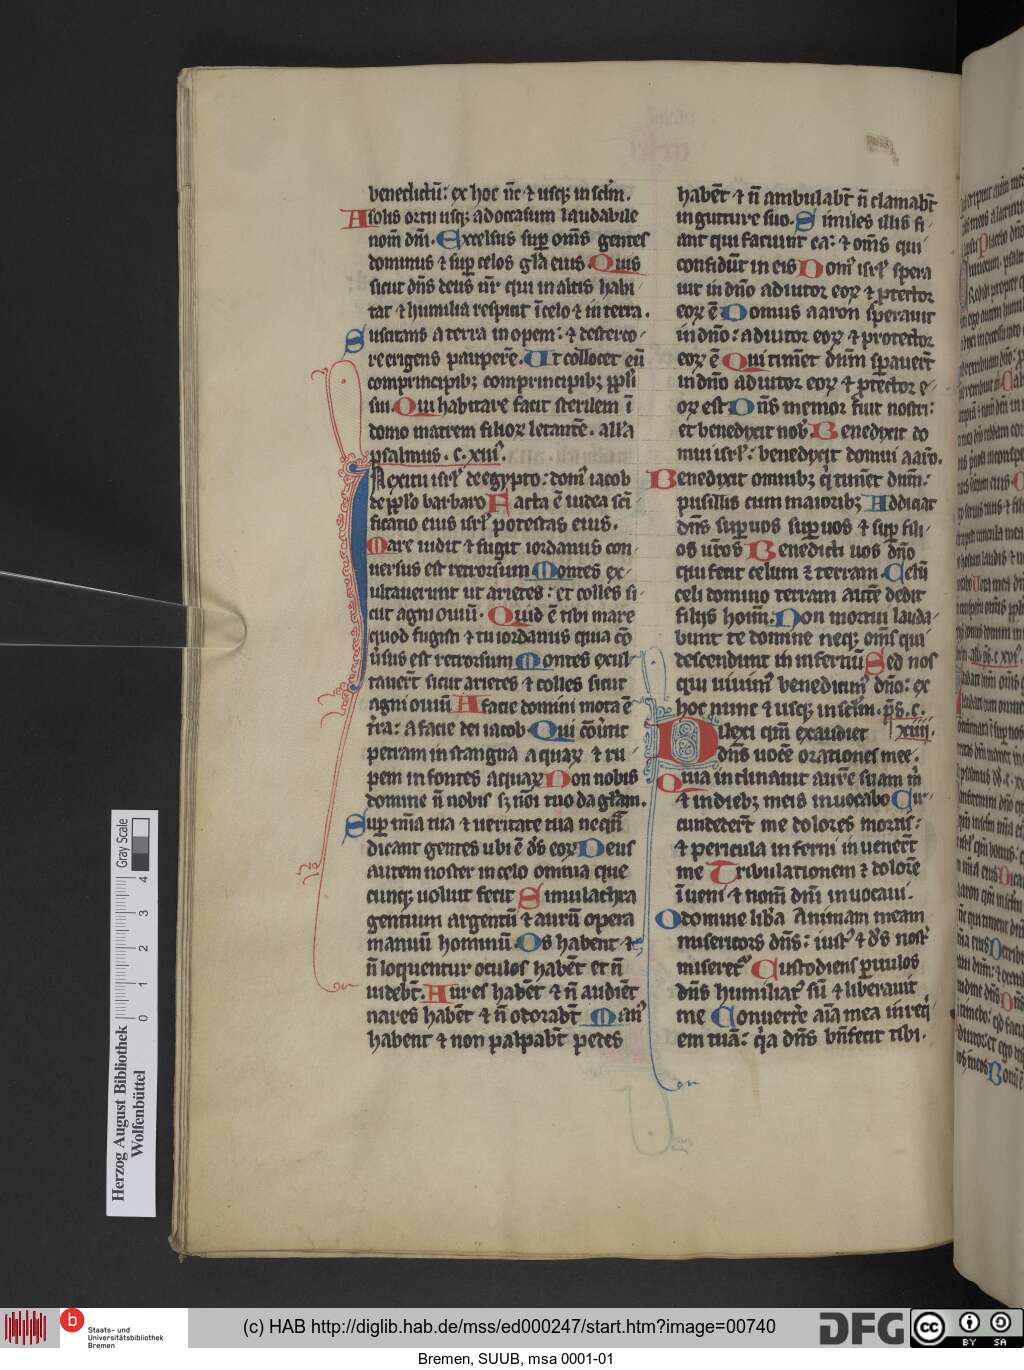 benedictū: ex hoc nc̄ ⁊ usqꝫ in sclm̄.
A solis ortu usqꝫ ad occasum laudabile
nom̄ dn̄i. Excelsus suꝑ om̄s gentes
dominus ⁊ suꝑ celos gl̄a eius. Quis
sicut dn̄s deus nr̄ qui in altis habi
tat ⁊ humilia respicit ī celo ⁊ in terra.
Suscitans a terra inopem: ⁊ de sterco-
re erigens pauperē. Ut collocet eū
cum principibꝫ cum principibꝫ ppl̄i
sui. Qui habitare facit sterilem ī
domo matrem filioꝝ letantē. all'a
psalmus. c. xiii⁹.
In exitu isrl̄ de egypto: dom⁹ iacob
de ppl̄o barbaro Facta ē iudea sc̄i
ficatio eius isrl̄ potestas eius.
Mare uidit ⁊ fugit iordanus con-
uersus est retrorsum Montes ex-
ultauerunt ut arietes: et colles si-
cut agni ouiū. Quid ē tibi mare
quod fugisti ⁊ tu iordanus quia cō
u̓sus est retrorsum Montes exul-
tauer̄t sicut arietes ⁊ colles sicut
agni ouiū A facie domini mota ē
tr̄ra: a facie dei iacob. Qui cōu̓tit
petram in stangna aquaꝝ ⁊ ru-
pem in fontes aquaꝝ Non nobis
domine n̄ nobis sꝫ nōi tuo da gl̄am.
Suꝑ mīa tua ⁊ ueritate tua neqn̄
dicant gentes ubi ē ds̄ eoꝝ Deus
autem noster in celo omnia que
cunqꝫ uoluit fecit Simulachra
gentium argentū ⁊ aurū opera
manuū hominū. Os habent ⁊
n̄ loquentur oculos habēt et n̄
uidebt̄. Aures habēt ⁊ n̄ audiēt
nares habēt ⁊ n̄ odorabt̄ Man⁹
habent ⁊ non palpabt̄ pedes
habēt ⁊ n̄ ambulabt̄ n̄ clamabt̄
in guture suo. Similes illis fi-
ant qui faciunt ea: ⁊ om̄s qui
confidūt in eis Dom⁹ isrl̄ spera
uit in dn̄o adiutor eoꝝ ⁊ ꝓtector
eoꝝ ē Domus aaron sperauit
in dn̄o: adiutor eoꝝ ⁊ protector
eoꝝ ē Qui timēt dn̄m sꝑauer̄t
in dn̄o adiutor eoꝝ ⁊ ꝓtector e-
oꝝ est Dn̄s memor fuit nostri:
et benedixit nob⁹ Benedixit do
mui isrl̄: benedixit domui aarō.
Benedixit omnibꝫ q̇ timēt dn̄m:
pusillis cum maioribꝫ Addiciat
dn̄s suꝑ uos suꝑ uos ⁊ suꝑ fili-
os ur̄os Benedicti uos dn̄o
qui fecit celum ⁊ terram. Celū
celi domino terram autē dedit
filijs hoīm. Non mortui lauda-
bunt te domine neqꝫ om̄s qui
descendunt in infernū Sed nos
qui uiuim⁹ benedicim⁹ dn̄o: ex
hoc nunc ⁊ usqꝫ in sclm̄. ps̄. c.
Dilexi qm̄ exaudiet xiiii.
dn̄s uocē orationes mee.
Quia inclinauit aurē suam m̄
⁊ in diebꝫ meis inuocabo Cir-
cundeder̄t me dolores mortis:
⁊ pericula inferni inuener̄t
me Tribulationem ⁊ dolorē
īueni ⁊ nom̄ dn̄i inuocaui.
O domine lib̓a animam meam
misericors dn̄s: iust⁹ ⁊ ds̄ nost̓
miseret⁹ Custodiens paruulos
dn̄s humiliat⁹ sū ⁊ liberauit
me Conuert̓e aīa mea in req̇
em tuā: q̇a dn̄s bn̄fecit tibi.
Herzog August Bibliothek
Wolfenbüttel
Gray Scale
0 1 2 3 4
b
Staats- und
Universitätsbibliothek
Bremen
(c) HAB http://diglib.hab.de/mss/ed000247/start.htm?image=00740
DFG
cc BY SA
Bremen, SUUB, msa 0001-01